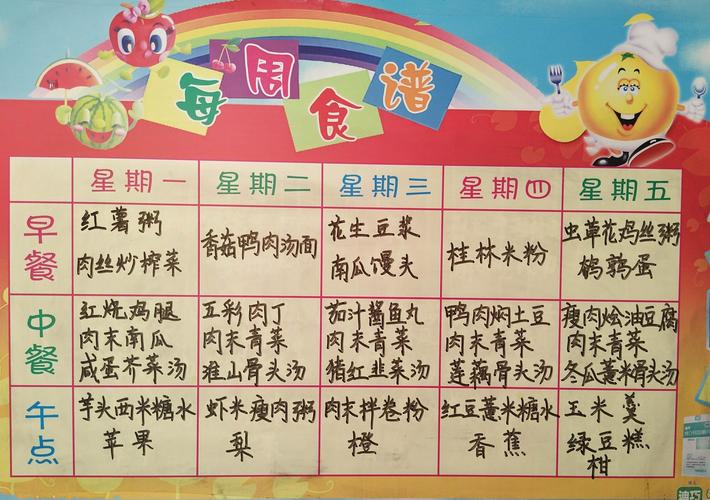 每周食谱
星期一 星期二 星期三 星期四 星期五
早餐
红薯粥
肉丝炒榨菜
香菇鸭肉汤面
花生豆浆
南瓜馒头
桂林米粉
虫草花鸡丝粥
鹌鹑蛋
中餐
红烧鸡腿
肉末南瓜
咸蛋芥菜汤
五彩肉丁
肉末青菜
淮山骨头汤
茄汁酱鱼丸
肉末青菜
猪红韭菜汤
鸭肉焖土豆
肉末青菜
莲藕骨头汤
瘦肉烩油豆腐
肉末青菜
冬瓜薏米骨头汤
午点
芋头西米糖水
苹果
虾米瘦肉粥
梨
肉末拌卷粉
橙
红豆薏米糖水
香蕉
玉米羹
绿豆糕
柑
迪巧